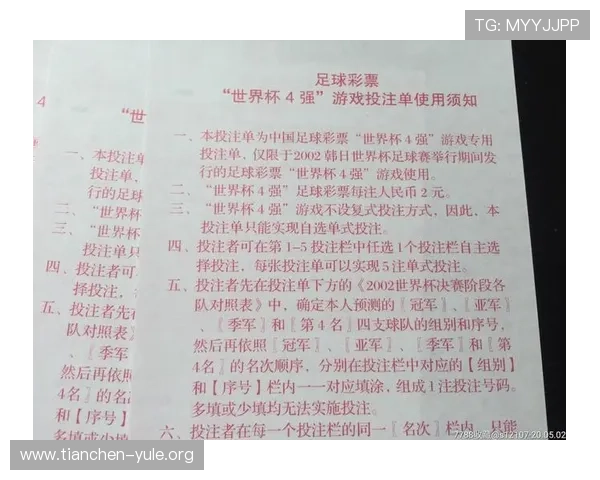 TG: MYYJJPP
足球彩票
“世界杯 4 强”游戏投注单使用须知
一、本投注单为中国足球彩票“世界杯 4 强”游戏专用
投注单，仅限于2002 韩日世界杯足球赛举行期间发
行的足球彩票“世界杯 4 强”游戏使用。
二、“世界杯 4 强”足球彩票每注人民币 2 元。
三、“世界杯 4 强”游戏不设复式投注方式，因此，本
投注单只能实现自选单式投注。
四、投注者可在第 1–5 投注栏中任选 1个投注栏自主选
择投注，每张投注单可以实现 5 注单式投注。
五、投注者先在投注单下方的《2002世界杯决赛阶段各
队对照表》中，确定本人预测的〖冠军〗、〖亚军〗
、〖季军〗和〖第 4 名〗四支球队的组别和序号，
然后再依照〖冠军〗、〖亚军〗、〖季军〗和〖第
4名〗的名次顺序，分别在投注栏中对应的【组别】
和【序号】栏内一一对应填涂，组成 1注投注号码。
多填或少填均无法实施投注。
六、投注者在每一个投注栏的同一〖名次〗栏内，只能
4
“世
一、本投注单
投注单，
行的足球
二、“世界杯
三、“世界杯
投注单只
四、投注者可
择投注，
五、投注者先
队对照表》
、〖季军
然后再依照
4名〗的名
和【序号】
多填或少填
六、投注者在
www.tianchen-yule.org